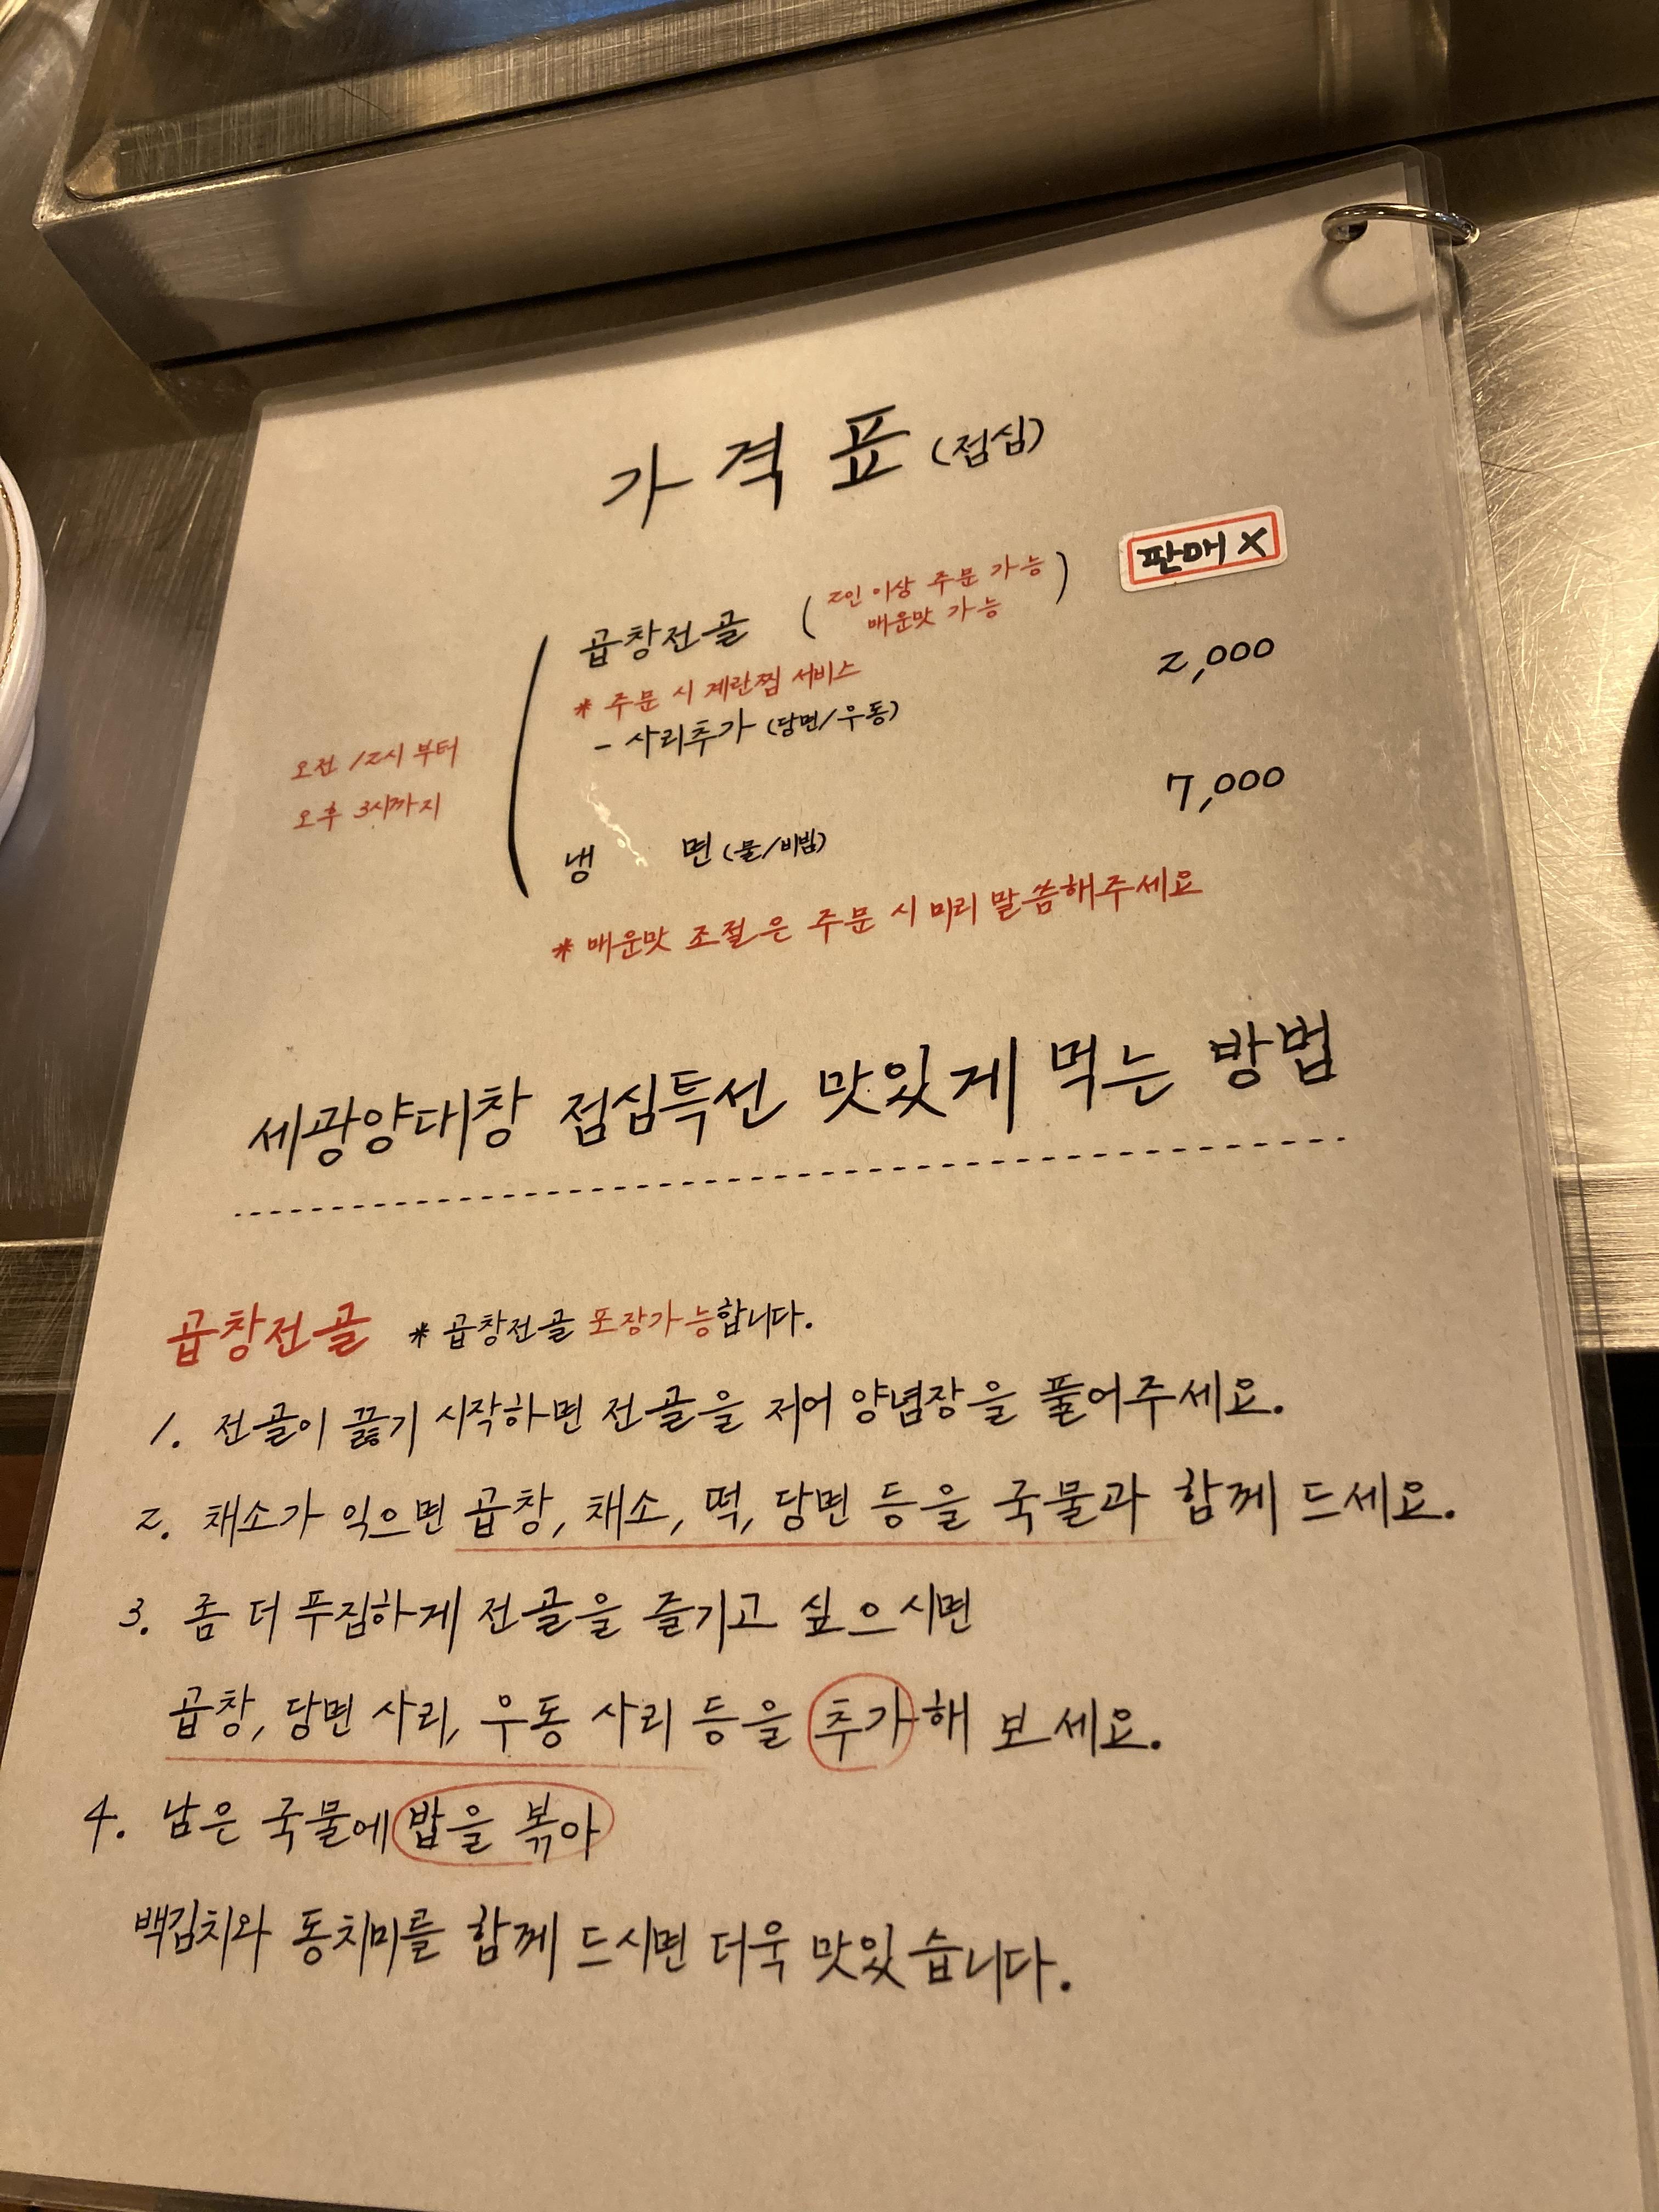 가격표(점심)
판매 X
곱창전골 (2인 이상 주문 가능
매운맛 가능)
* 주문 시 계란찜 서비스
- 사리추가 (당면/우동) 2,000
오전 12시 부터
오후 3시까지
냉 면 (물/비빔) 7,000
* 매운맛 조절은 주문 시 미리 말씀해주세요
세광양대창 점심특선 맛있게 먹는 방법
곱창전골 * 곱창전골 포장가능합니다.
1. 전골이 끓기 시작하면 전골을 저어 양념장을 풀어주세요.
2. 채소가 익으면 곱창, 채소, 떡, 당면 등을 국물과 함께 드세요.
3. 좀 더 푸짐하게 전골을 즐기고 싶으시면
곱창, 당면 사리, 우동 사리 등을 추가해 보세요.
4. 남은 국물에 밥을 볶아
백김치와 동치미를 함께 드시면 더욱 맛있습니다.